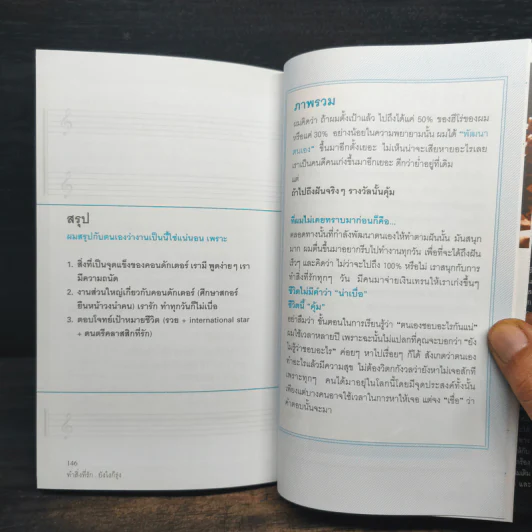 สรุป
ผมสรุปกับตนเองว่างานเป็นนี้ใช่แน่นอน เพราะ
1. สิ่งที่เป็นจุดแข็งของคอนดักเตอร์ เรามี พูดง่ายๆ เรา
มีความถนัด
2. งานส่วนใหญ่เกี่ยวกับคอนดักเตอร์ (ศึกษาสกอร์
ยืนหน้าวงนำคน) เรารัก ทำทุกวันก็ไม่เบื่อ
3. ตอบโจทย์เป้าหมายชีวิต (รวย + international star
+ ดนตรีคลาสสิกที่รัก)
146
ทำสิ่งที่รัก...ยังไงก็รุ่ง
ภาพรวม
ผมคิดว่า ถ้าผมตั้งเป้าแล้ว ไปถึงได้แค่ 50% ของฮีโร่ของผม
หรือแค่ 30% อย่างน้อยในความพยายามนั้น ผมได้ "พัฒนา
ตนเอง" ขึ้นมาอีกตั้งเยอะ ไม่เห็นน่าจะเสียหายอะไรเลย
เราเป็นคนดีคนเก่งขึ้นมาอีกเยอะ ดีกว่าย่ำอยู่ที่เดิม
แต่
ถ้าไปถึงฝันจริงๆ รางวัลนั้นคุ้ม
ที่ผมไม่เคยทราบมาก่อนก็คือ...
ตลอดทางนั้นที่กำลังพัฒนาตนเองให้ทำตามฝันนั้น มันสนุก
มาก ผมตื่นขึ้นมาอยากรีบไปทำงานทุกวัน เพื่อที่จะได้ถึงฝัน
เร็วๆ และคิดว่า ไม่ว่าจะไปถึง 100% หรือไม่ เราสนุกกับการ
ทำสิ่งที่รักทุกๆ วัน มีคนมาจ่ายเงินเทรนให้เราเก่งขึ้นๆ
ชีวิตไม่มีคำว่า "น่าเบื่อ"
ชีวิตนี้ "คุ้ม"
อย่าลืมว่า ขั้นตอนในการเรียนรู้ว่า "ตนเองชอบอะไรกันแน่"
ผมใช้เวลาหลายปี เพราะฉะนั้นไม่แปลกที่คุณจะบอกว่า "ยัง
ไม่รู้ว่าชอบอะไร" ค่อยๆ หาไปเรื่อยๆ ก็ได้ สังเกตว่าตนเอง
ทำอะไรแล้วมีความสุข ไม่ต้องวิตกกังวลว่ายังหาไม่เจอสักที
เพราะทุกๆ คนได้มาอยู่ในโลกนี้โดยมีจุดประสงค์ทั้งนั้น
เพียงแต่บางคนอาจใช้เวลาในการหาให้เจอ แต่จง "เชื่อ" ว่า
คำตอบนั้นจะมา